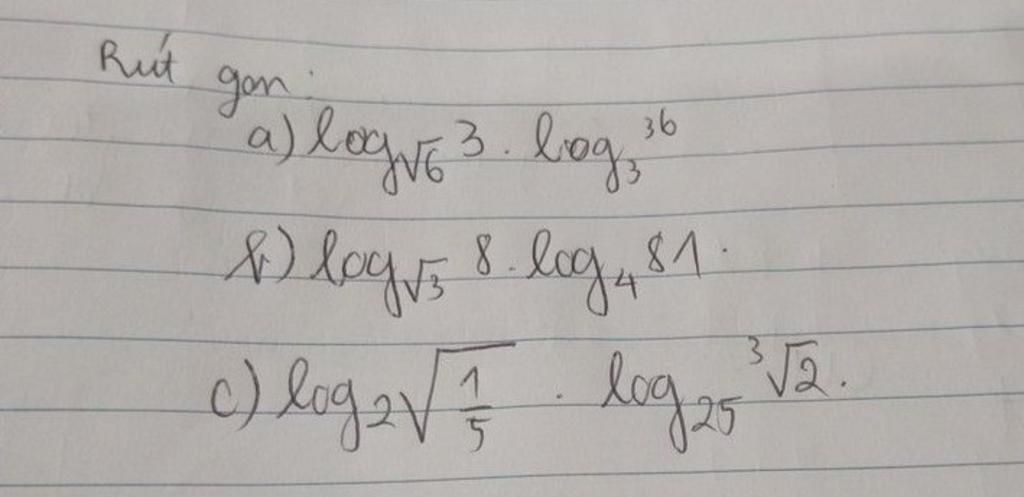 Rút gọn:
a) log_{√6} 3 . log_3 36
b) log_{√3} 8 . log_4 81.
c) log_2 √(1/5) . log_{25} ∛2.